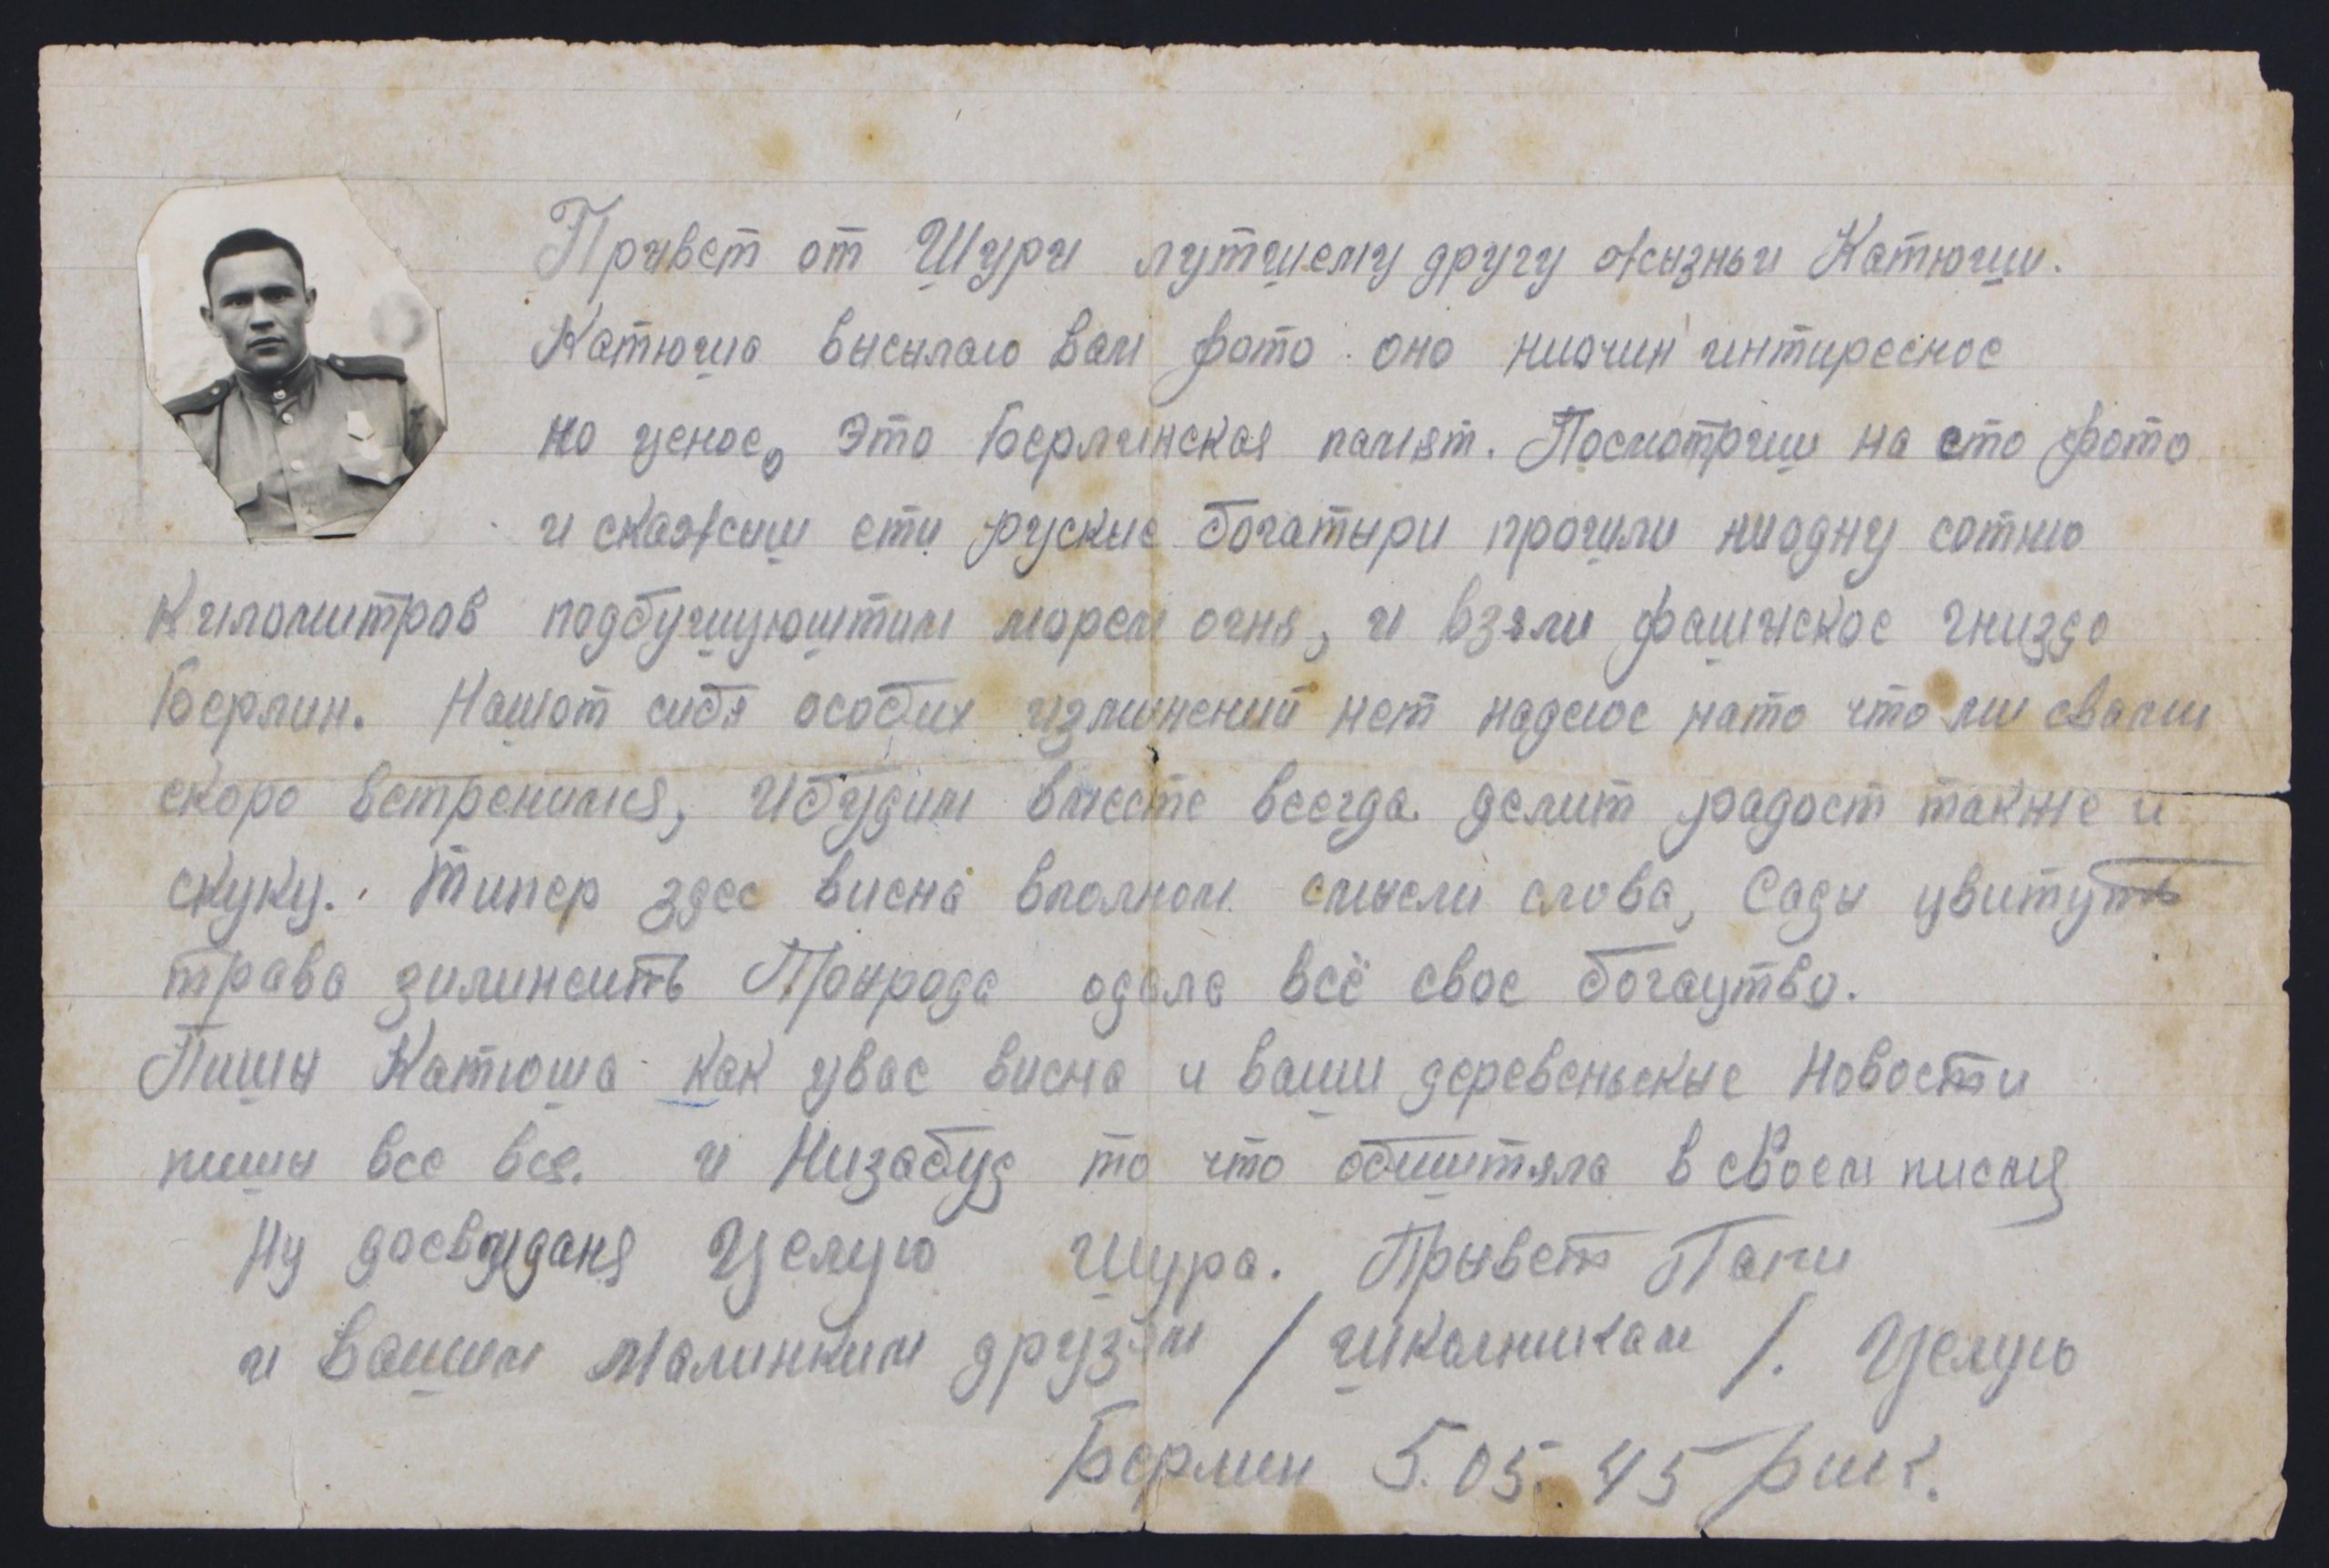 Привет от Шури лутшему другу жызньи Катюши.
Катюша высылаю вам фото оно ниочин интиресное
но ценое, Это Берлинская памят. Посмотриш на ето фото
и скажыш ети руские богатыри прошли ниодну сотню
километров подбушуюштим морем огня, и взяли фашиское гниздо
Берлин. Нашот сибя особих измнений нет надеюс нато что ми свами
скоро встренимся, ибудим вместе всегда делит радост также и
скуку. Типер здес висна вполном смысли слова, Сады цвитуть
трава зилинеить Прырода одела всё свое богатство.
Пишы Катюша как увас висна и ваши деревеньские новости
пишы все все. и Низабуд то что обиштяла в своем писмя
Ну досвиданя Целую Шура. Прывет Папи
и Вашим малинким друзям / школникам /. Целую
Берлин 5.05.45